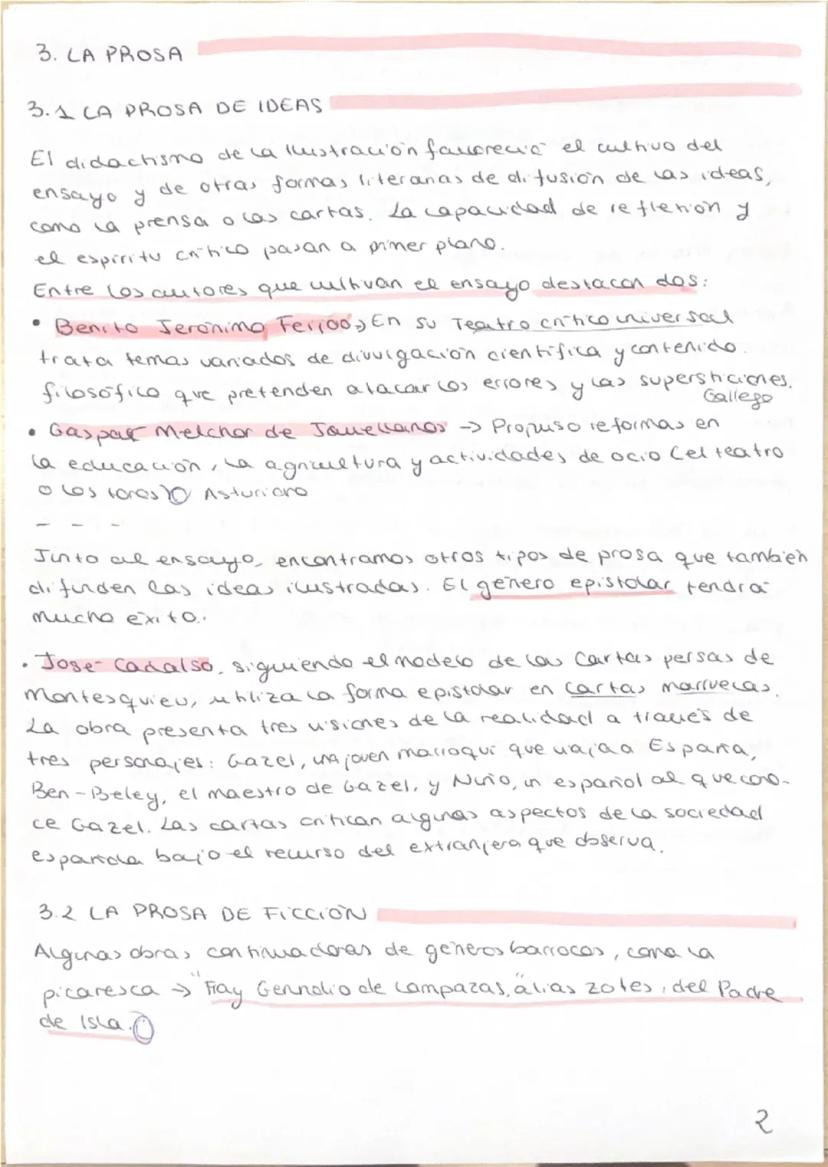 3. LA PROSA
3.1 LA PROSA DE IDEAS
El didactismo de la Ilustración favoreció el cultivo del
ensayo y de otras formas literarias de difusión de las ideas,
como la prensa o las cartas. La capacidad de reflexión y
el espíritu crítico pasan a primer plano.
Entre los autores que cultivan el ensayo destacan dos:
• Benito Jerónimo Feijoo → En su Teatro crítico universal
trata temas variados de divulgación científica y contenido
filosófico que pretenden atacar los errores y las supersticiones.
Gallego
• Gaspar Melchor de Jovellanos → Propuso reformas en
la educación, la agricultura y actividades de ocio (el teatro
o los toros). Asturiano
- - -
Junto al ensayo, encontramos otros tipos de prosa que también
difunden las ideas ilustradas. El género epistolar tendrá
mucho éxito.
• José Cadalso, siguiendo el modelo de las Cartas persas de
Montesquieu, utiliza la forma epistolar en Cartas marruecas.
La obra presenta tres visiones de la realidad a través de
tres personajes: Gazel, un joven marroquí que viaja a España,
Ben-Beley, el maestro de Gazel, y Nuño, un español al que cono-
ce Gazel. Las cartas critican algunos aspectos de la sociedad
española bajo el recurso del extranjero que observa.
3.2 LA PROSA DE FICCIÓN
Algunas obras continuadoras de géneros barrocos, como la
picaresca → "Fray Gerundio de Campazas," alias zotes, del Padre
de Isla.
2